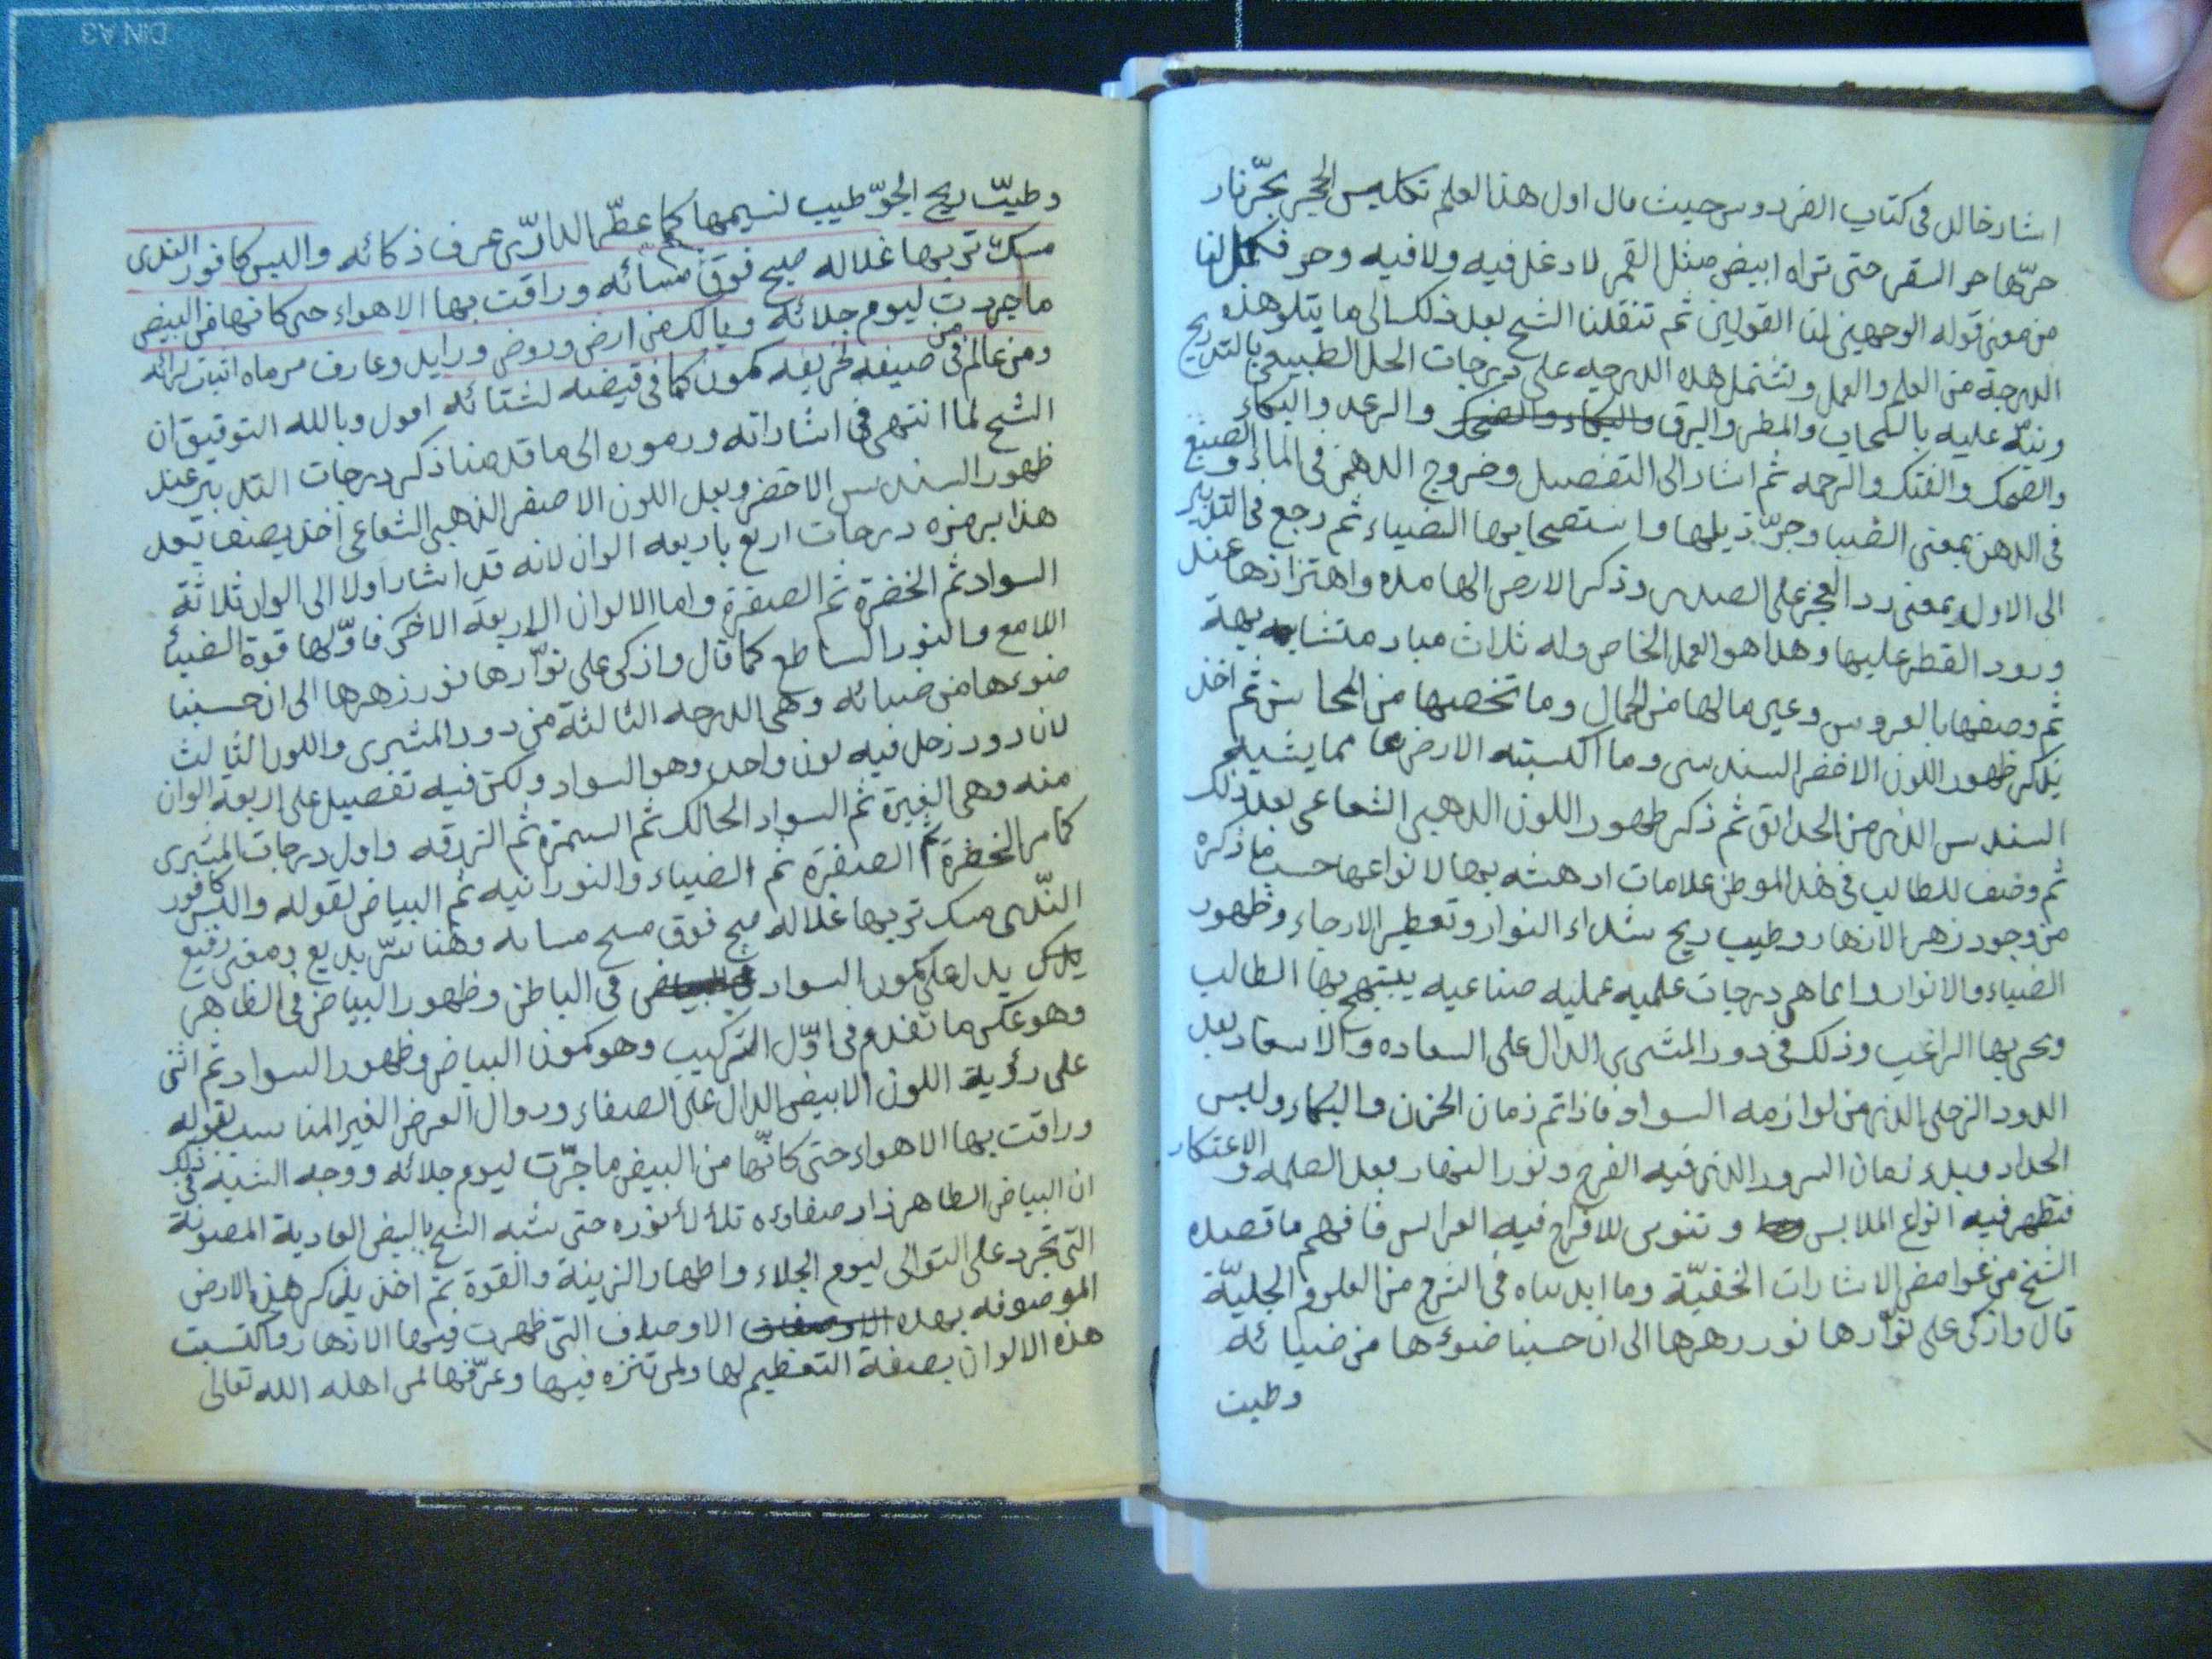 اشار خالد فى كتاب الفردوس حيث قال اول هذا العلم تكليس الحجر بحرّ نار
حرّها حر السقر حتى تراه ابيض مثل القمر لا دغل فيه ولا فيه وحر فكمل لنا
من معنى قوله الوجهين لنا القولين ثم تنقلنا الشيخ بعد ذلك الى ما يتلو هذه
الدرجة من العلم والعمل وتشتمل هذه الدرجه على درجات الحل الطبيعى بالتدريج
ونبّه عليه بالسحاب والمطر والبرق والبكاء والضحك والرعد والبكاء
والضحك والفتك والرحمه ثم اشار الى التفصيل وخروج الدهن فى الماء والصبغ
فى الدهن بمعنى الصبا وجرّ ذيلها واستصحابها الضياء ثم رجع فى التدبير
الى الاول بمعنى رد العجز على الصدر وذكر الارض الهامده واهتزازها عند
ورود القطر عليها وهذا هو العمل الخاص وله ثلاث مبار متشابهة
ثم وصفها بالعروس وعين مالها من الجمال وما تخصها من المحاسن ثم اخذ
يذكر ظهور اللون الاخضر السندسى وما اكتسبته الارض مما يشبه
السندس الذى من الحدائق ثم ذكر ظهور اللون الذهبى الشعاعى بعد ذلك
ثم وصف للطالب فى هذا الموطن علامات ادهشه بها لانواعها حسب ما ذكره
من وجود زهر الازهار وطيب ريح شذاء النوار وتعطير الارجاء وظهور
الضياء والانوار وانما هى درجات علميه عمليه صناعيه يبتهج بها الطالب
ويحربها الراغب وذلك فى دور المشترى الدال على السعاده والاسعاد بعد
الدور الزحلى الذى من لوازمه السواد فاذا تم زمان الحزن والبكاء ولبس
الحداد وبدء زمان السرور الذى فيه الفرح ونور النهار بعد الظلمه والاعتكار
فتظهر فيه انواع الملابس وتنوس للافراح فيه العرائس فافهم ما قصده
الشيخ من غوامض الاشارات الخفيّة وما ابديناه فى الشرح من العلوم الجليّة
قال واذكى على نوّارها نور زهرها الى ان حسبنا ضوءها من ضيائه
وطيب
وطيبّ ريح الجوّ طيب نسيمها كما عطّر الدارّى عرف ذكائه والبس كافور الندى
مسك تربها غلاله صبح فوق مسائه وراقت بها الاهواء حتى كانها من البيض
ما جردت ليوم جلائه ويالك من ارض وروض ورايد وعارف من ماه اثبات لرائه
ومن عالم فى صيفه من خريفه كمون كما فى قيضه لشتائه اقول وبالله التوفيق ان
الشيخ لما انتهى فى اشاراته ورموزه الى ما قدمنا ذكر درجات التدبير عند
ظهور السندس الاخضر وبعد اللون الاصفر الذهبى الشعاعى اخذ يصف بعد
هذا برمزه درجات اربع باربعه الوان لانه قد اشار اولا الى الوان ثلاثة
السواد ثم الخضرة ثم الصفرة واما الالوان الاربعة الاخر فاوّلها قوة الضياء
اللامع والنور الساطع كما قال واذكى على نوّارها نور زهرها الى ان حسبنا
ضوءها من ضيائه وهى الدرجه الثالثة من دور المشترى واللون الثالث
لان دور زحل فيه لون واحد وهو السواد ولكن فيه تفصيل على اربعة الوان
منه وهى الغبرة ثم السواد الحالك ثم السمرة ثم الزرقه واول درجات المشترى
كما مر الخضرة ثم الصفرة ثم الضياء والنورانيه ثم البياض لقوله والبس كافور
النّدى مسك تربها غلاله صبح فوق مسح مسائه وهنا سّر بديع ومعنى رفيع
يدل على كمون السواد فى الباطن وظهور البياض فى الظاهر
وهو عكس ما تقدم فى اوّل التركيب وهو كمون البياض وظهور السواد ثم اثنى
على رؤية اللون الابيض الدال على الصفاء وزوال العرض الغير المناسب بقوله
وراقت بها الاهواء حتى كانّها من البيض ما جرّت ليوم جلائه ووجه الشبه فى ذلك
ان البياض الظاهر زاد صفاؤه تلألأ نوره حتى شبه الشيخ بالبيض العادية المصونة
التى تجرد على التوالى ليوم الجلاء واظهار الزينة والقوة ثم اخذ يذكر هذه الارض
الموصوفه بهذه الاوصاف التى ظهرت فيها الازهار واكتسبت
هذه الالوان بصفة التعظيم لها ولمن تنزه فيها وعرّفها لمن اهله الله تعالى